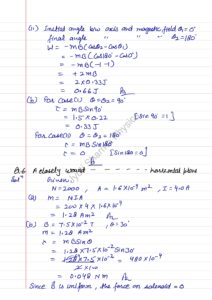 (ii) Initial angle b/w axis and magnetic field θ₁ = 0°
final angle " " " " θ₂ = 180°
W = -mB(cosθ₂ - cosθ₁)
= -mB(cos180° - cos0°)
= -mB(-1-1)
= +2mB
= 2×0.33J
= 0.66J A
(b) For case(i) θ = θ₂ = 90°
τ = mBsin90°
= 1.5×0.22 [sin90° = 1]
= 0.33J
For case(ii) θ = θ₂ = 180°
τ = mBsin180°
τ = 0 [sin180 = 0]
Q.6 A closely wound ------ horizontal plane
Given:
N = 2000, A = 1.6×10⁻⁴ m², I = 4.0A
(a) m = NIA
= 200×4×1.6×10⁻⁴
= 1.28 Am²
(b) B = 7.5×10⁻² T, θ = 30°
m = 1.28 Am²
τ = mBsinθ
= 1.28×7.5×10⁻² sin30°
= 480×10⁻⁴
= 0.048 Nm
Since B is uniform, the force on solenoid = 0